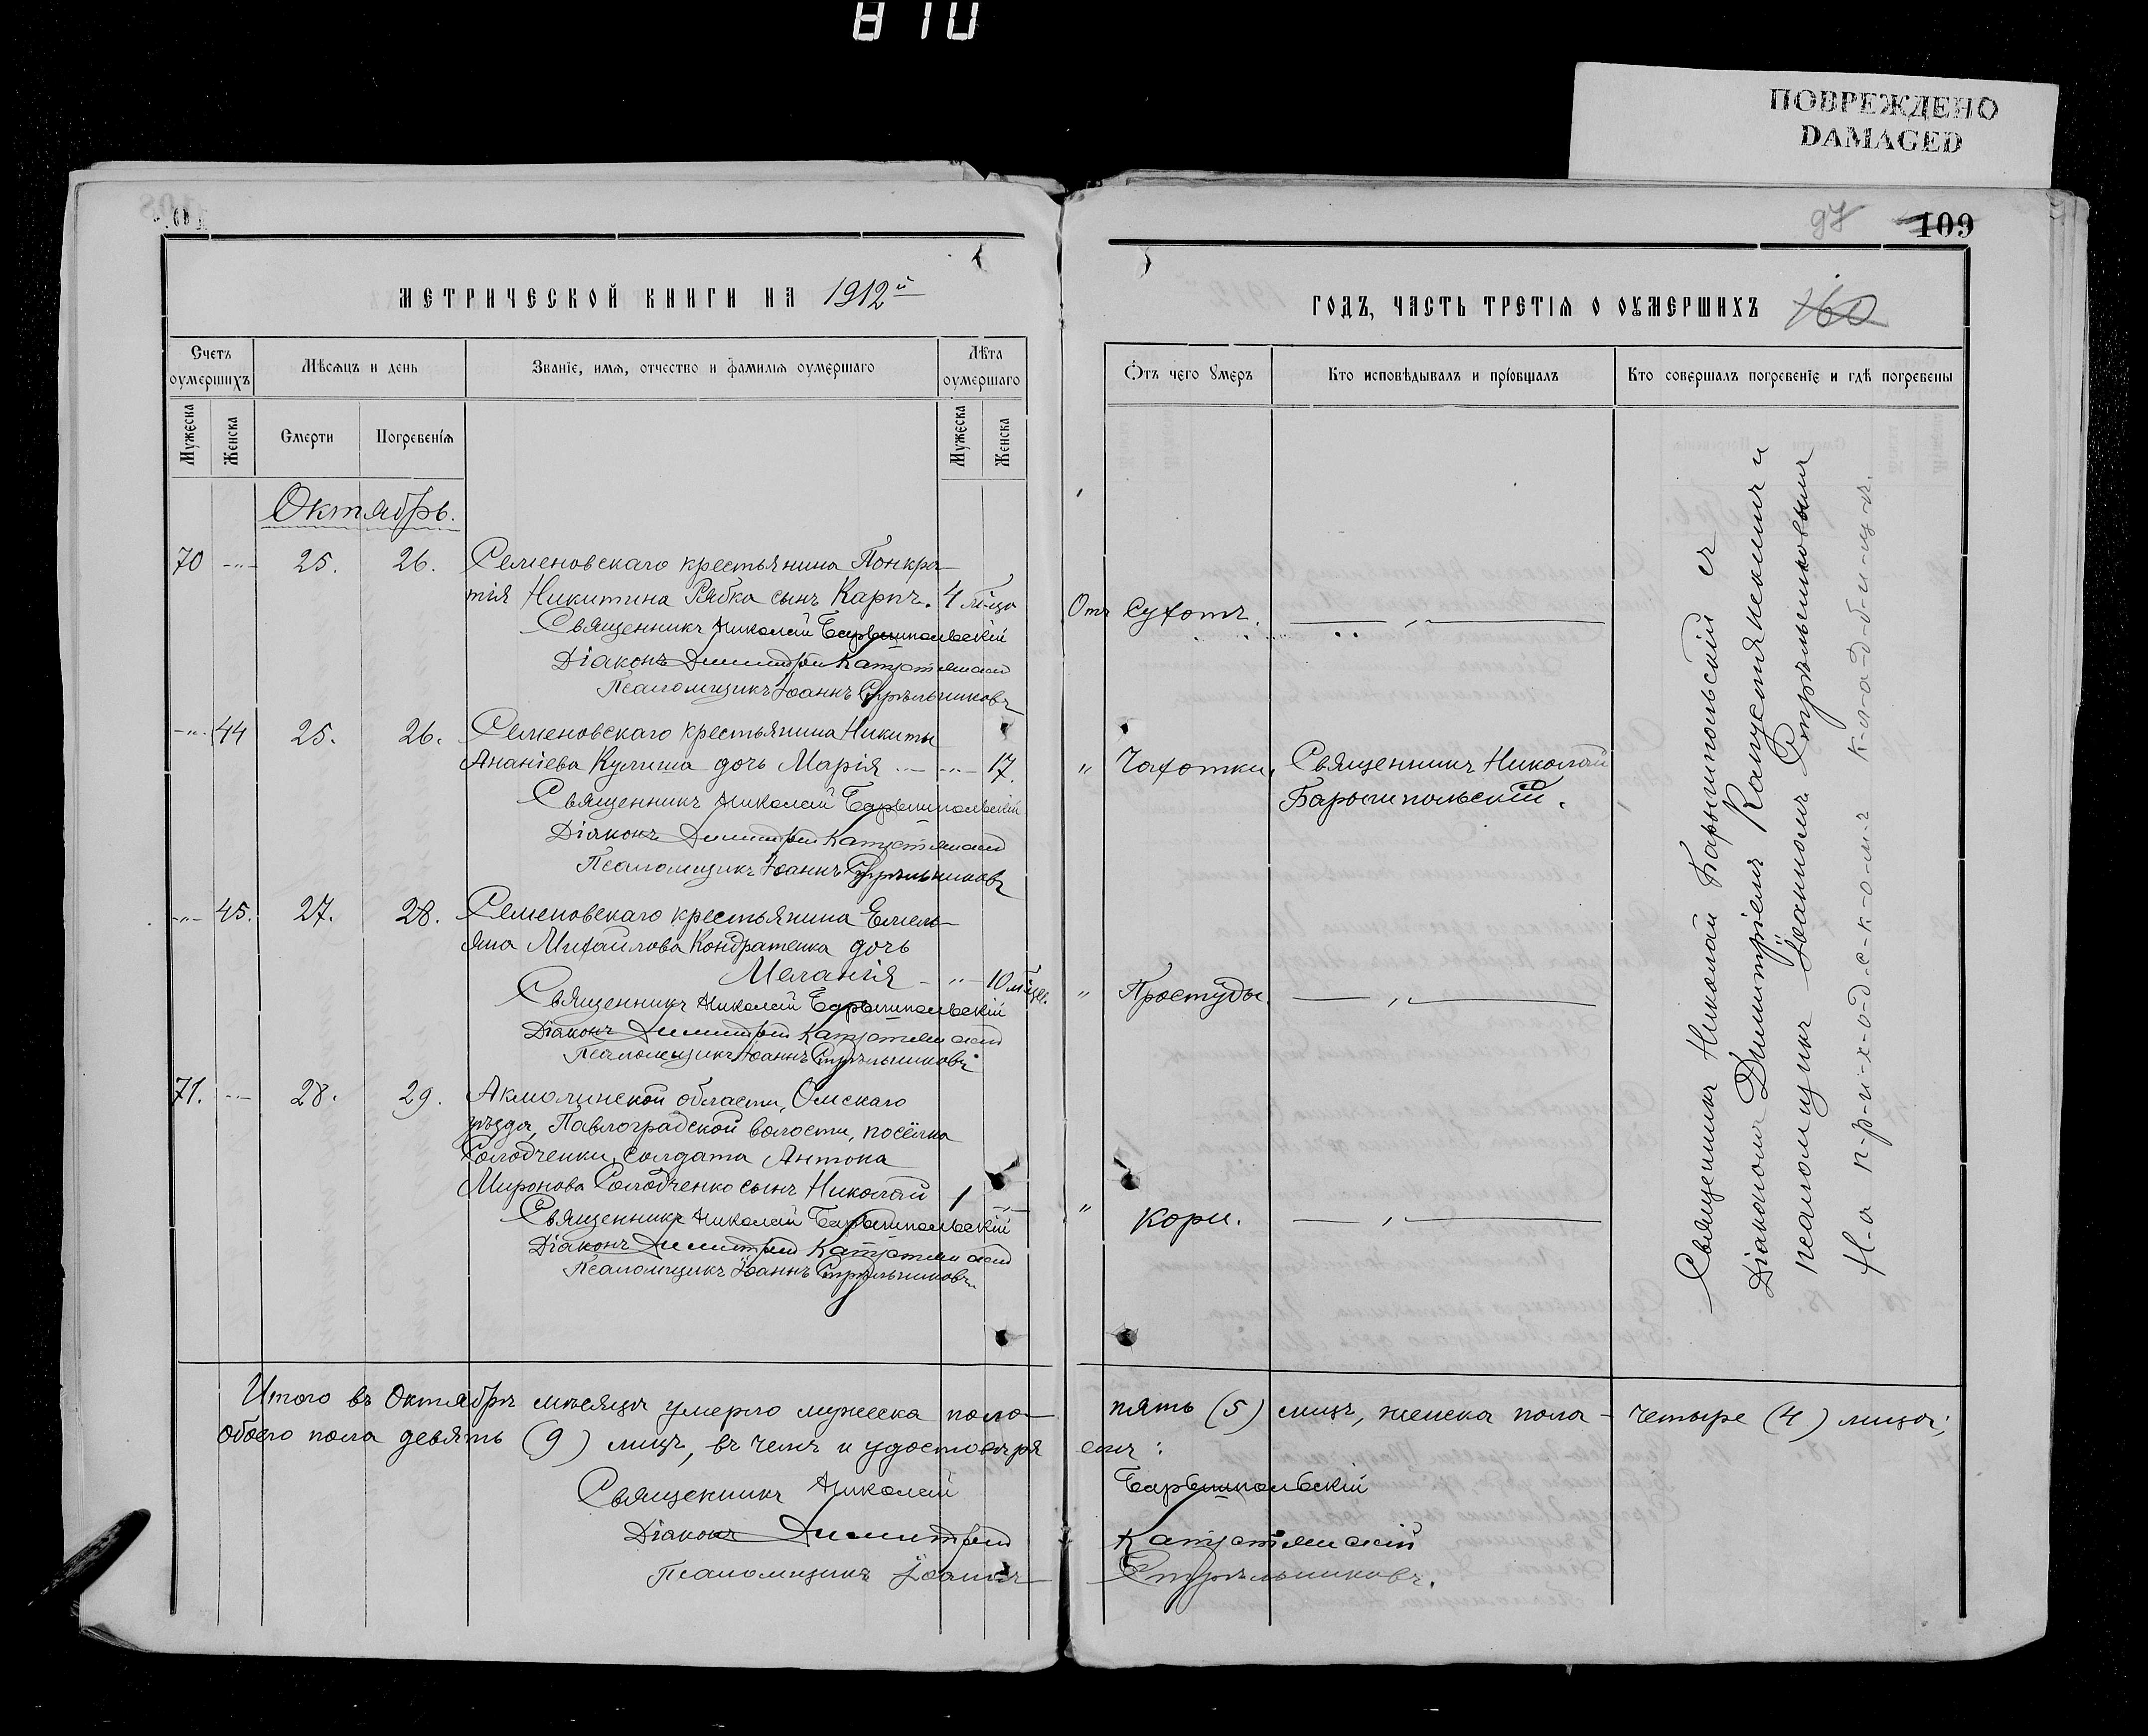 810
ПОВРЕЖДЕНО
DAMAGED
97 109
МЕТРИЧЕСКОЙ КНИГИ НА 1912й
ГОДЪ, ЧАСТЬ ТРЕТІѦ О ОУМЕРШИХЪ 160
Счетъ оумершихъ
Мѣсѧцъ и день
Званіе, имѧ, отчество и фамиліѧ оумершаго
Лѣта оумершаго
Мужеска
Женска
Смерти
Погребеніѧ
Мужеска
Женска
Отъ чего умеръ
Кто исповѣдывалъ и пріобщалъ
Кто совершалъ погребеніе и гдѣ погребены
Октябрь.
70 -"- 25. 26. Семеновскаго крестьянина Понкра-
тія Никитина Рябка сынъ Карпъ. 4 м̃ца
Отъ Сухотъ. — „ —
Священникъ Николай Барышпольскій
Діаконъ Димитрій Капустянскій
Псаломщикъ Іоаннъ Стрѣльниковъ
-"- 44 25. 26. Семеновскаго крестьянина Никиты
Ананіева Кулиша дочь Марія -"- 17.
" Чахотки. Священникъ Николай
Барышпольскій.
Священникъ Николай Барышпольскій
Діаконъ Димитрій Капустянскій
Псаломщикъ Іоаннъ Стрѣльниковъ
-"- 45. 27. 28. Семеновскаго крестьянина Емель-
яна Михайлова Кондратенка дочь
Меланія -"- 10 м̃це.
" Простуды. — „ —
Священникъ Николай Барышпольскій
Діаконъ Димитрій Капустянскій
Псаломщикъ Іоаннъ Стрѣльниковъ
71. -"- 28. 29. Акмолинской области, Омскаго
уѣзда, Павлоградской волости, посёлка
Солодченки, солдата Антона
Миронова Солодченко сынъ Николай 1 -"-
" Кори. — „ —
Священникъ Николай Барышпольскій
Діаконъ Димитрій Капустянскій
Псаломщикъ Іоаннъ Стрѣльниковъ
Священникъ Николай Барышпольскій съ
Діакономъ Димитріемъ Капустянскимъ и
псаломщикъ Іоанномъ Стрѣльниковымъ
Н-а п-р-и-х-о-д-с-к-о-мъ к-л-а-д-б-и-щ-ѣ.
Итого въ Октябрѣ мѣсяцѣ умерло мужеска пола — пять (5) лицъ, женска пола — четыре (4) лица;
обоего пола девять (9) лицъ, въ чемъ и удостовѣря емъ:
Священникъ Николай Барышпольскій
Діаконъ Димитрій Капустянскій
Псаломщикъ Іоаннъ Стрѣльниковъ.